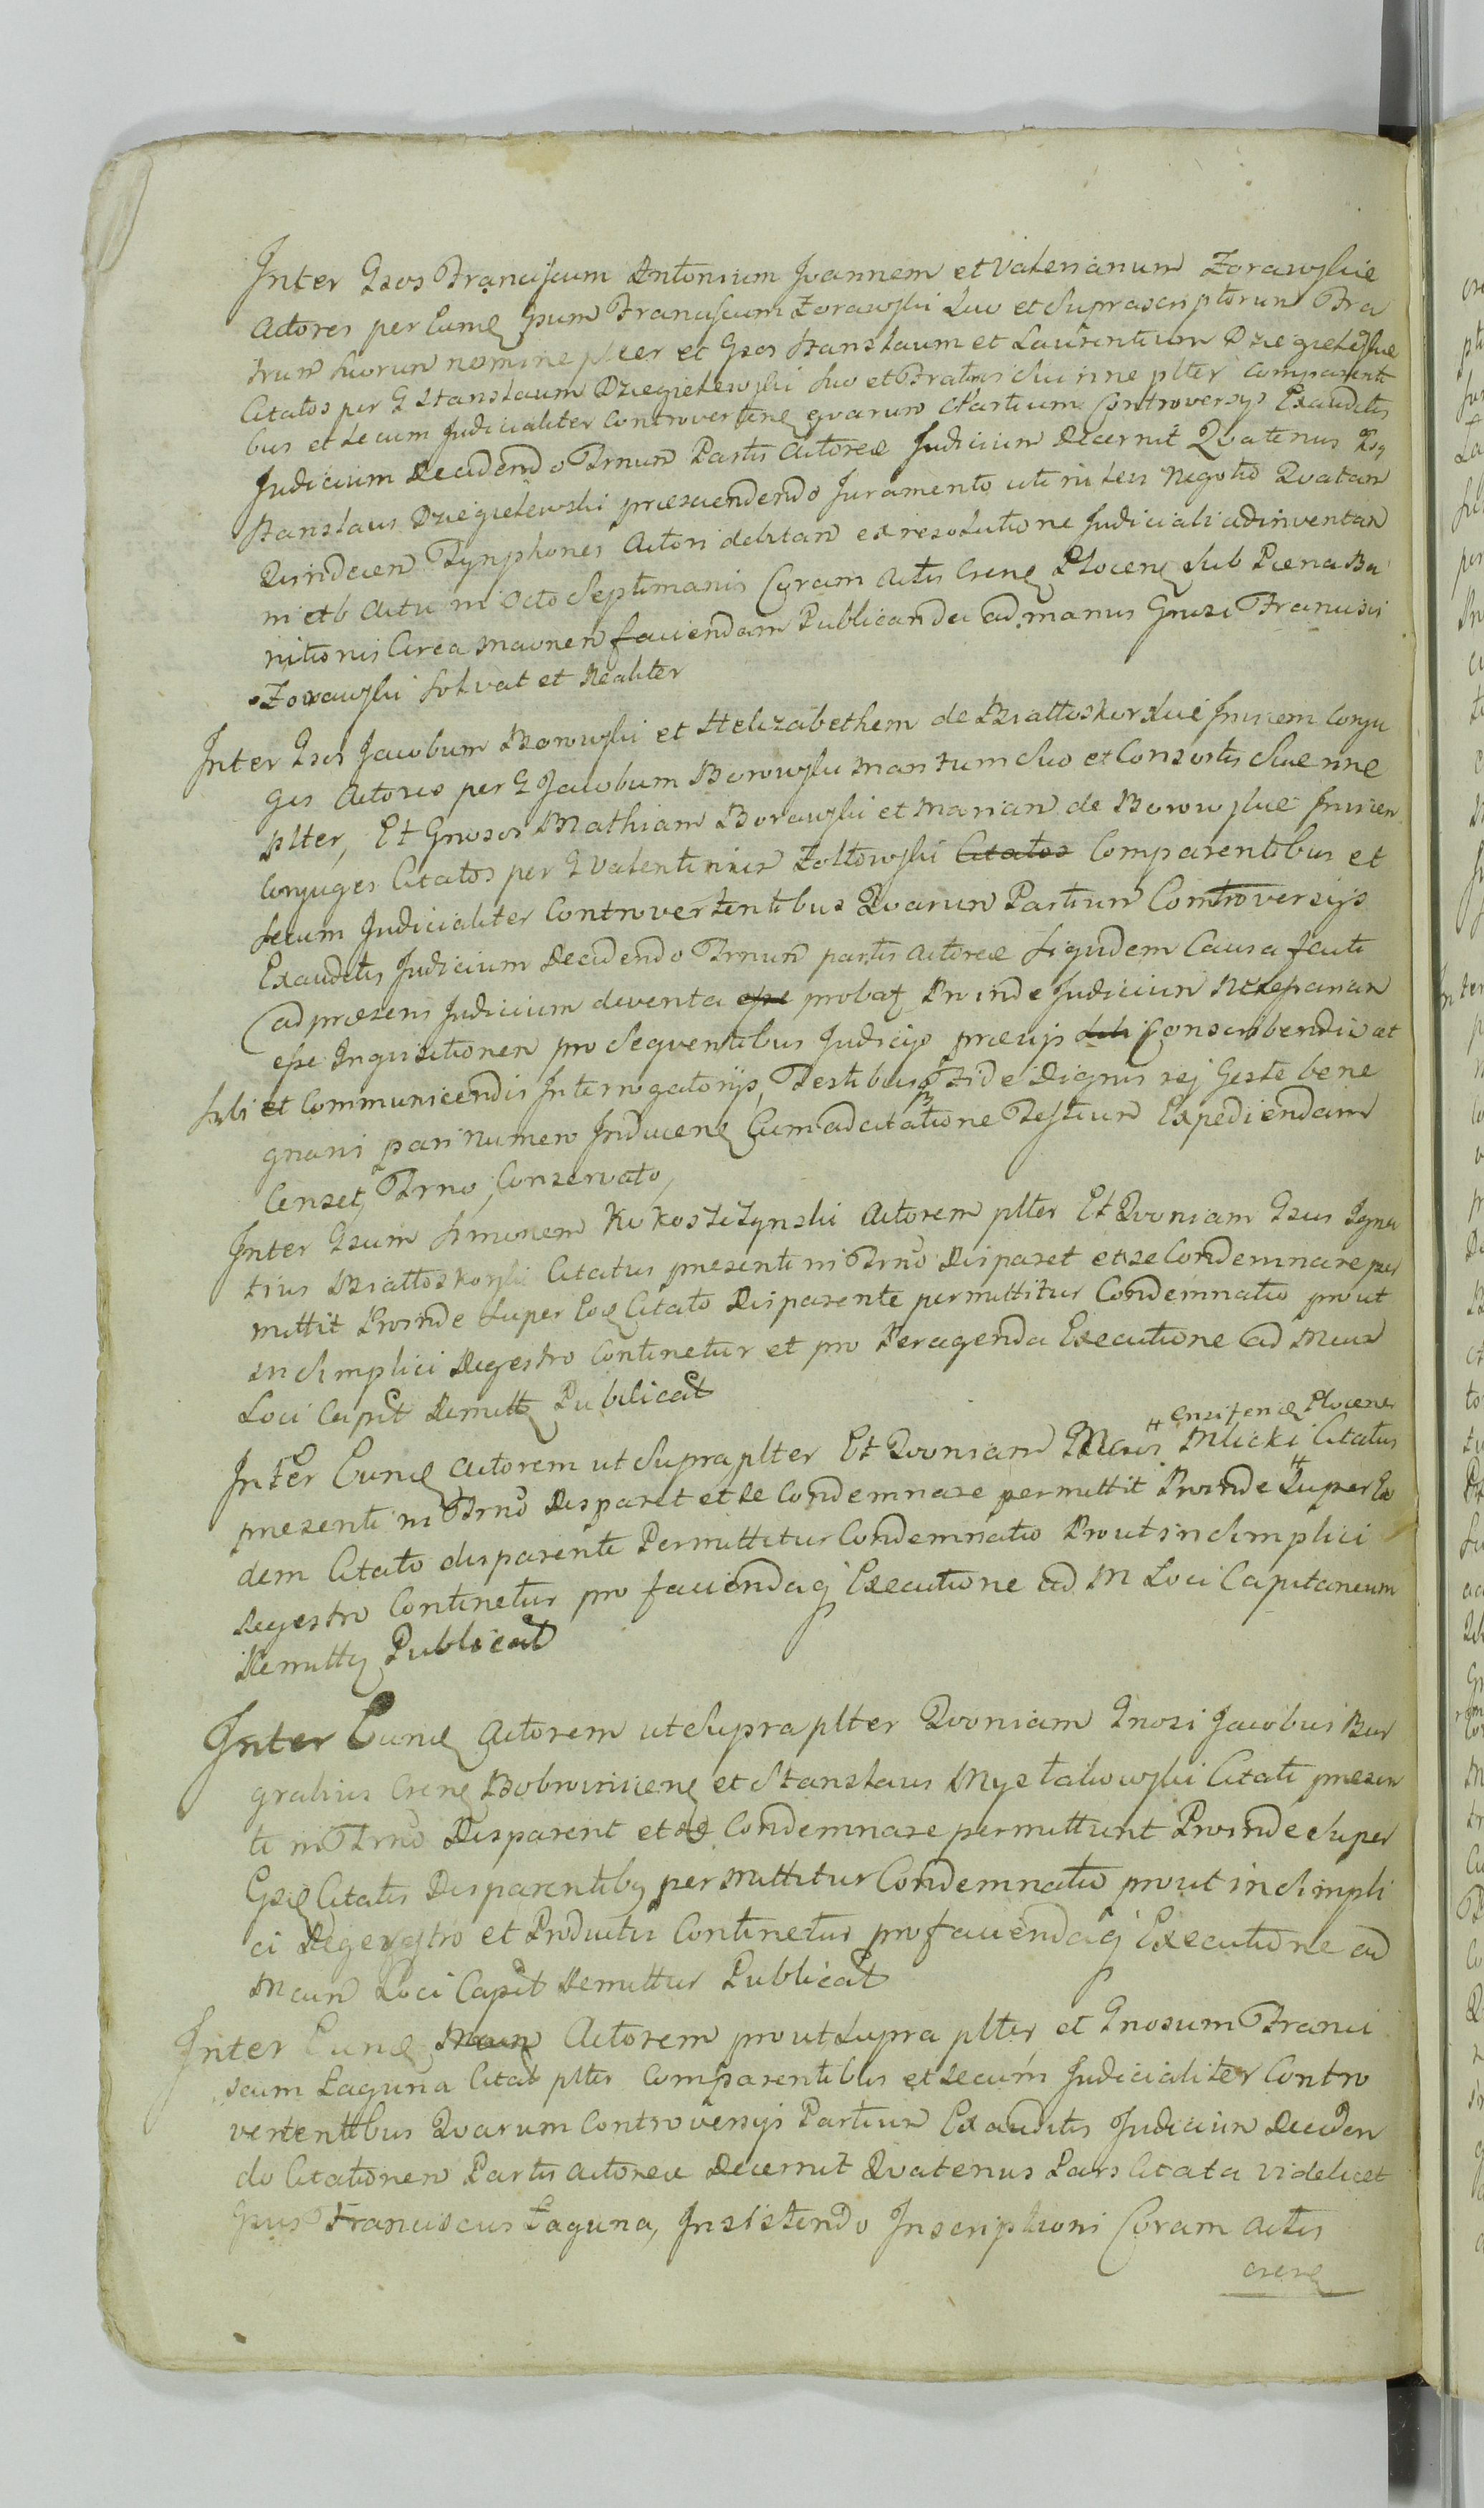 Inter Gsos Franciscum Antonium Joannem et Valerianum Zorawskie
Actores per Eund Gsum Franciscum Zorawski suo et suprascriptorum Fra
trum suorum nomine plter et Gsos Stanislaum et Laurentium Dziegielewskie
Citatos per G Stanislaum Dziegielewski suo et Fratris sui nne plter Comparenti
bus et secum Judicialiter Controverten quarum Partium Controversys Exauditis
Judicium Decidendo Trnum Partis Actoreæ Judicium decernit Qvatenus Gsq
Stanislaus Dziegielewski præscindendo Juramento uti in levi Negotio Qvatan
Quindecem Tynphones Actori debitam ex resolutione Judiciali adinventan
in Actu in octo Septimanis Coram Actis Cren Plocen sub Pæna Ba
nitionis Circa faciendam Publicanda ad manus Gnosi Francisci
Zorawski solvat et Realiter
Inter Gsos Jacobum Borowski et Helizabethem de Białłoskorskie Invicem Conju
ges Actores per G Jacobum Borowski Maritum suo et Consortis suæ nne
plter, Et Gnosos Mathiam Borawski et Marian de Borowskie Invicem
Conjuges Citatos per G Valentinum Zołtowski Citatos Comparentibus et
secum Judicialiter Controvertentibus Qvarum Partium Controversys
Exauditis Judicium Decidendo Trnum partis Actoreæ siqudem Causa facti
ad præsens Judicium deventa esse probat Proinde Judicium Necessariam
esse Inquisitionem pro seqventibus Judicys prævys sibi Conscribendis ac
sibi et Communicendis Interrogatorys, Testibus Fide Dignis rej Geste bene
gnaris pari numero Inducen Cum adcitatione Testium Expediendam
Censet, Trno Conservato,
Inter Gsum Simonem Kokoszczynski Actorem plter Et Qvoniam Gsus Igna
tius Białłoskorski Citatus presenti in Trno Disparet et se Condemnare per
mittit Proinde super Eod Citato Disparente permittitur Condemnatio prout
in simplici Regestro Continetur et pro Peragenda Executione ad Mcum
Loci Capit Remitt Publicat
Ensifend Plocens
Inter Eund Actorem ut supra plter Et Qvoniam Mlicki Citatus
presenti in Trno Disparet et se Condemnare permittit Proinde super Eo
dem Citato disparente Permittitur Condemnatio Prout in simplici
Regestro Continetur pro faciendaq Executione ad M Loci Capitaneum
Remittq Publicat
Inter Eund Actorem ut supra plter Qvoniam Gnosi Jacobus Bur
grabius Cren Bobrownicen et Stanislaus Mystakowski Citati presen
ti in Trno Disparent et se Condemnare permittunt Proinde super
Gsis Citatis Disparentibq permittitur Condemnatio prout in simpli
ci Regestro et Productis Continetur pro faciendaq Executione ad
Mcum Loci Capit Remittitur Publicat
Inter Eund Actorem prout supra plter, et Gnosum Franci
scum Łaguna Citat plter Comparentibus et secum Judicialiter Contro
vertentibus Qvarum Controversys Partium Exauditis Judicium Deciden
do Citationem Partis Actoreæ Decernit Qvatenus Pars Citata videlicet
Gsus Franciscus Łaguna, Insistendo Inscriptioni Coram Actis
Cren